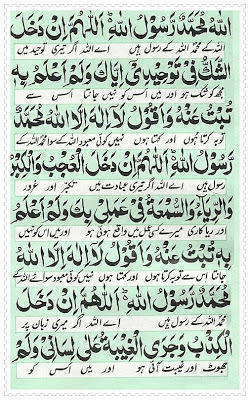 اللهِ مُحَمَّدٌ رَّسُوْلُ اللهِ اَللّٰهُمَّ اِنْ دَخَلَ
اللہ کے محمد اللہ کے رسول ہیں اے اللہ اگر تیری توحید میں
الشَّكُّ فِيْ تَوْحِيْدِيْ اِيَّاكَ وَلَمْ اَعْلَمْ بِهٖ
مجھ کو شک ہو اور میں اس کو نہیں جانتا اس سے
تُبْتُ عَنْهُ وَاَقُوْلُ لَا اِلٰهَ اِلَّا اللهُ مُحَمَّدٌ
توبہ کرتا ہوں اور کہتا ہوں نہیں کوئی معبود اللہ کے سوا محمد اللہ کے
رَّسُوْلُ اللهِ اَللّٰهُمَّ اِنْ دَخَلَ الْعُجْبُ وَالْكِبْرُ
رسول ہیں اے اللہ اگر میری عبادت میں تکبّر اور غرور
وَالرِّيَآءُ وَالسُّمْعَةُ فِيْ عَمَلِيْ بِكَ وَلَمْ اَعْلَمْ
اور ریا کاری میرے عمل میں واقع ہوئی ہو اور میں اس کو نہیں
بِهٖ تُبْتُ عَنْهُ وَاَقُوْلُ لَا اِلٰهَ اِلَّا اللهُ
جانتا اس سے توبہ کرتا ہوں اور کہتا ہوں نہیں کوئی معبود سوائے اللہ کے
مُحَمَّدٌ رَّسُوْلُ اللهِ اَللّٰهُمَّ اِنْ دَخَلَ
محمد اللہ کے رسول ہیں اے اللہ اگر میری زبان پر
الْكِذْبُ وَجَرَى الْغِيْبَةُ عَلٰى لِسَانِيْ وَلَمْ
جھوٹ اور غیبت آئی ہو اور میں اس کو